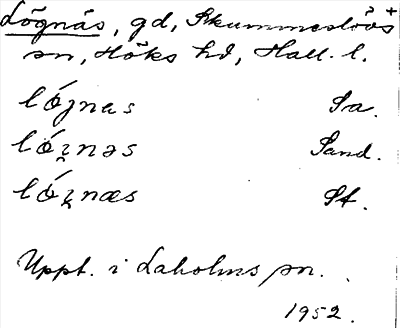 Lögnäs, gd, Skummeslövs +
sn, Höks hd, Hall. l.
lóȷnas Sa.
lóꝛ̨nəs Sand.
lóꝛ̨næs St.
Uppt. i Laholms sn.
1952.